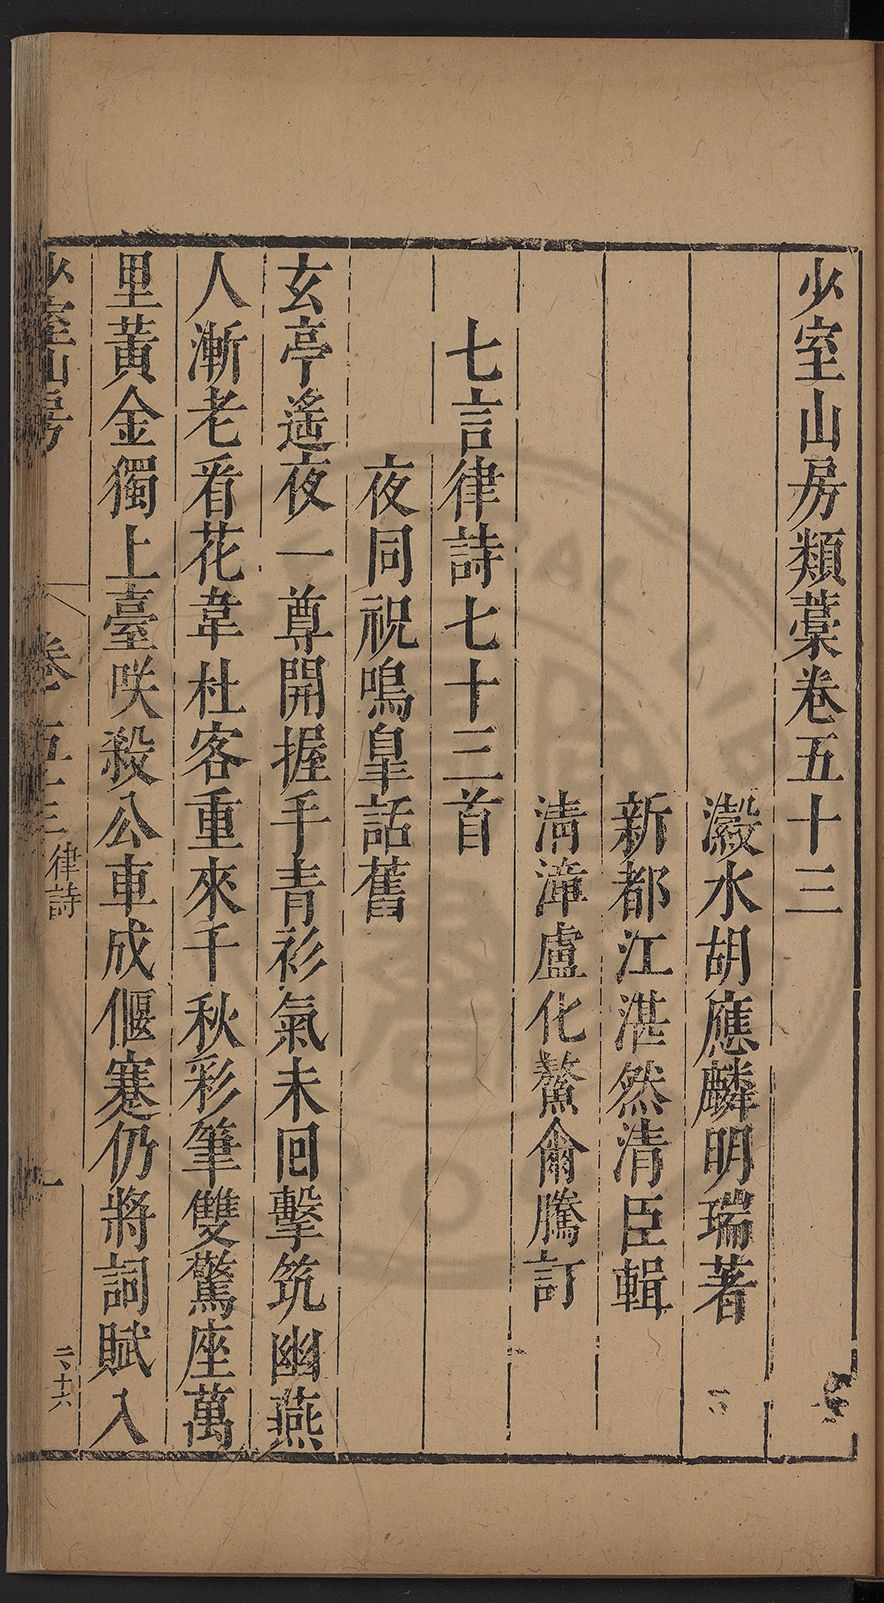 少室山房類藁卷五十三
瀫水胡應麟明瑞著
新都江湛然清臣輯
清漳盧化鰲爾騰訂
七言律詩七十三首
夜同祝鳴皇話舊
玄亭遙夜一尊開握手青衫氣未囘擊筑幽燕
人漸老看花韋杜客重來千秋彩筆雙驚座萬
里黃金獨上臺咲殺公車成偃蹇仍將詞賦入
少室山房
卷五十三
律詩
一
二、十六